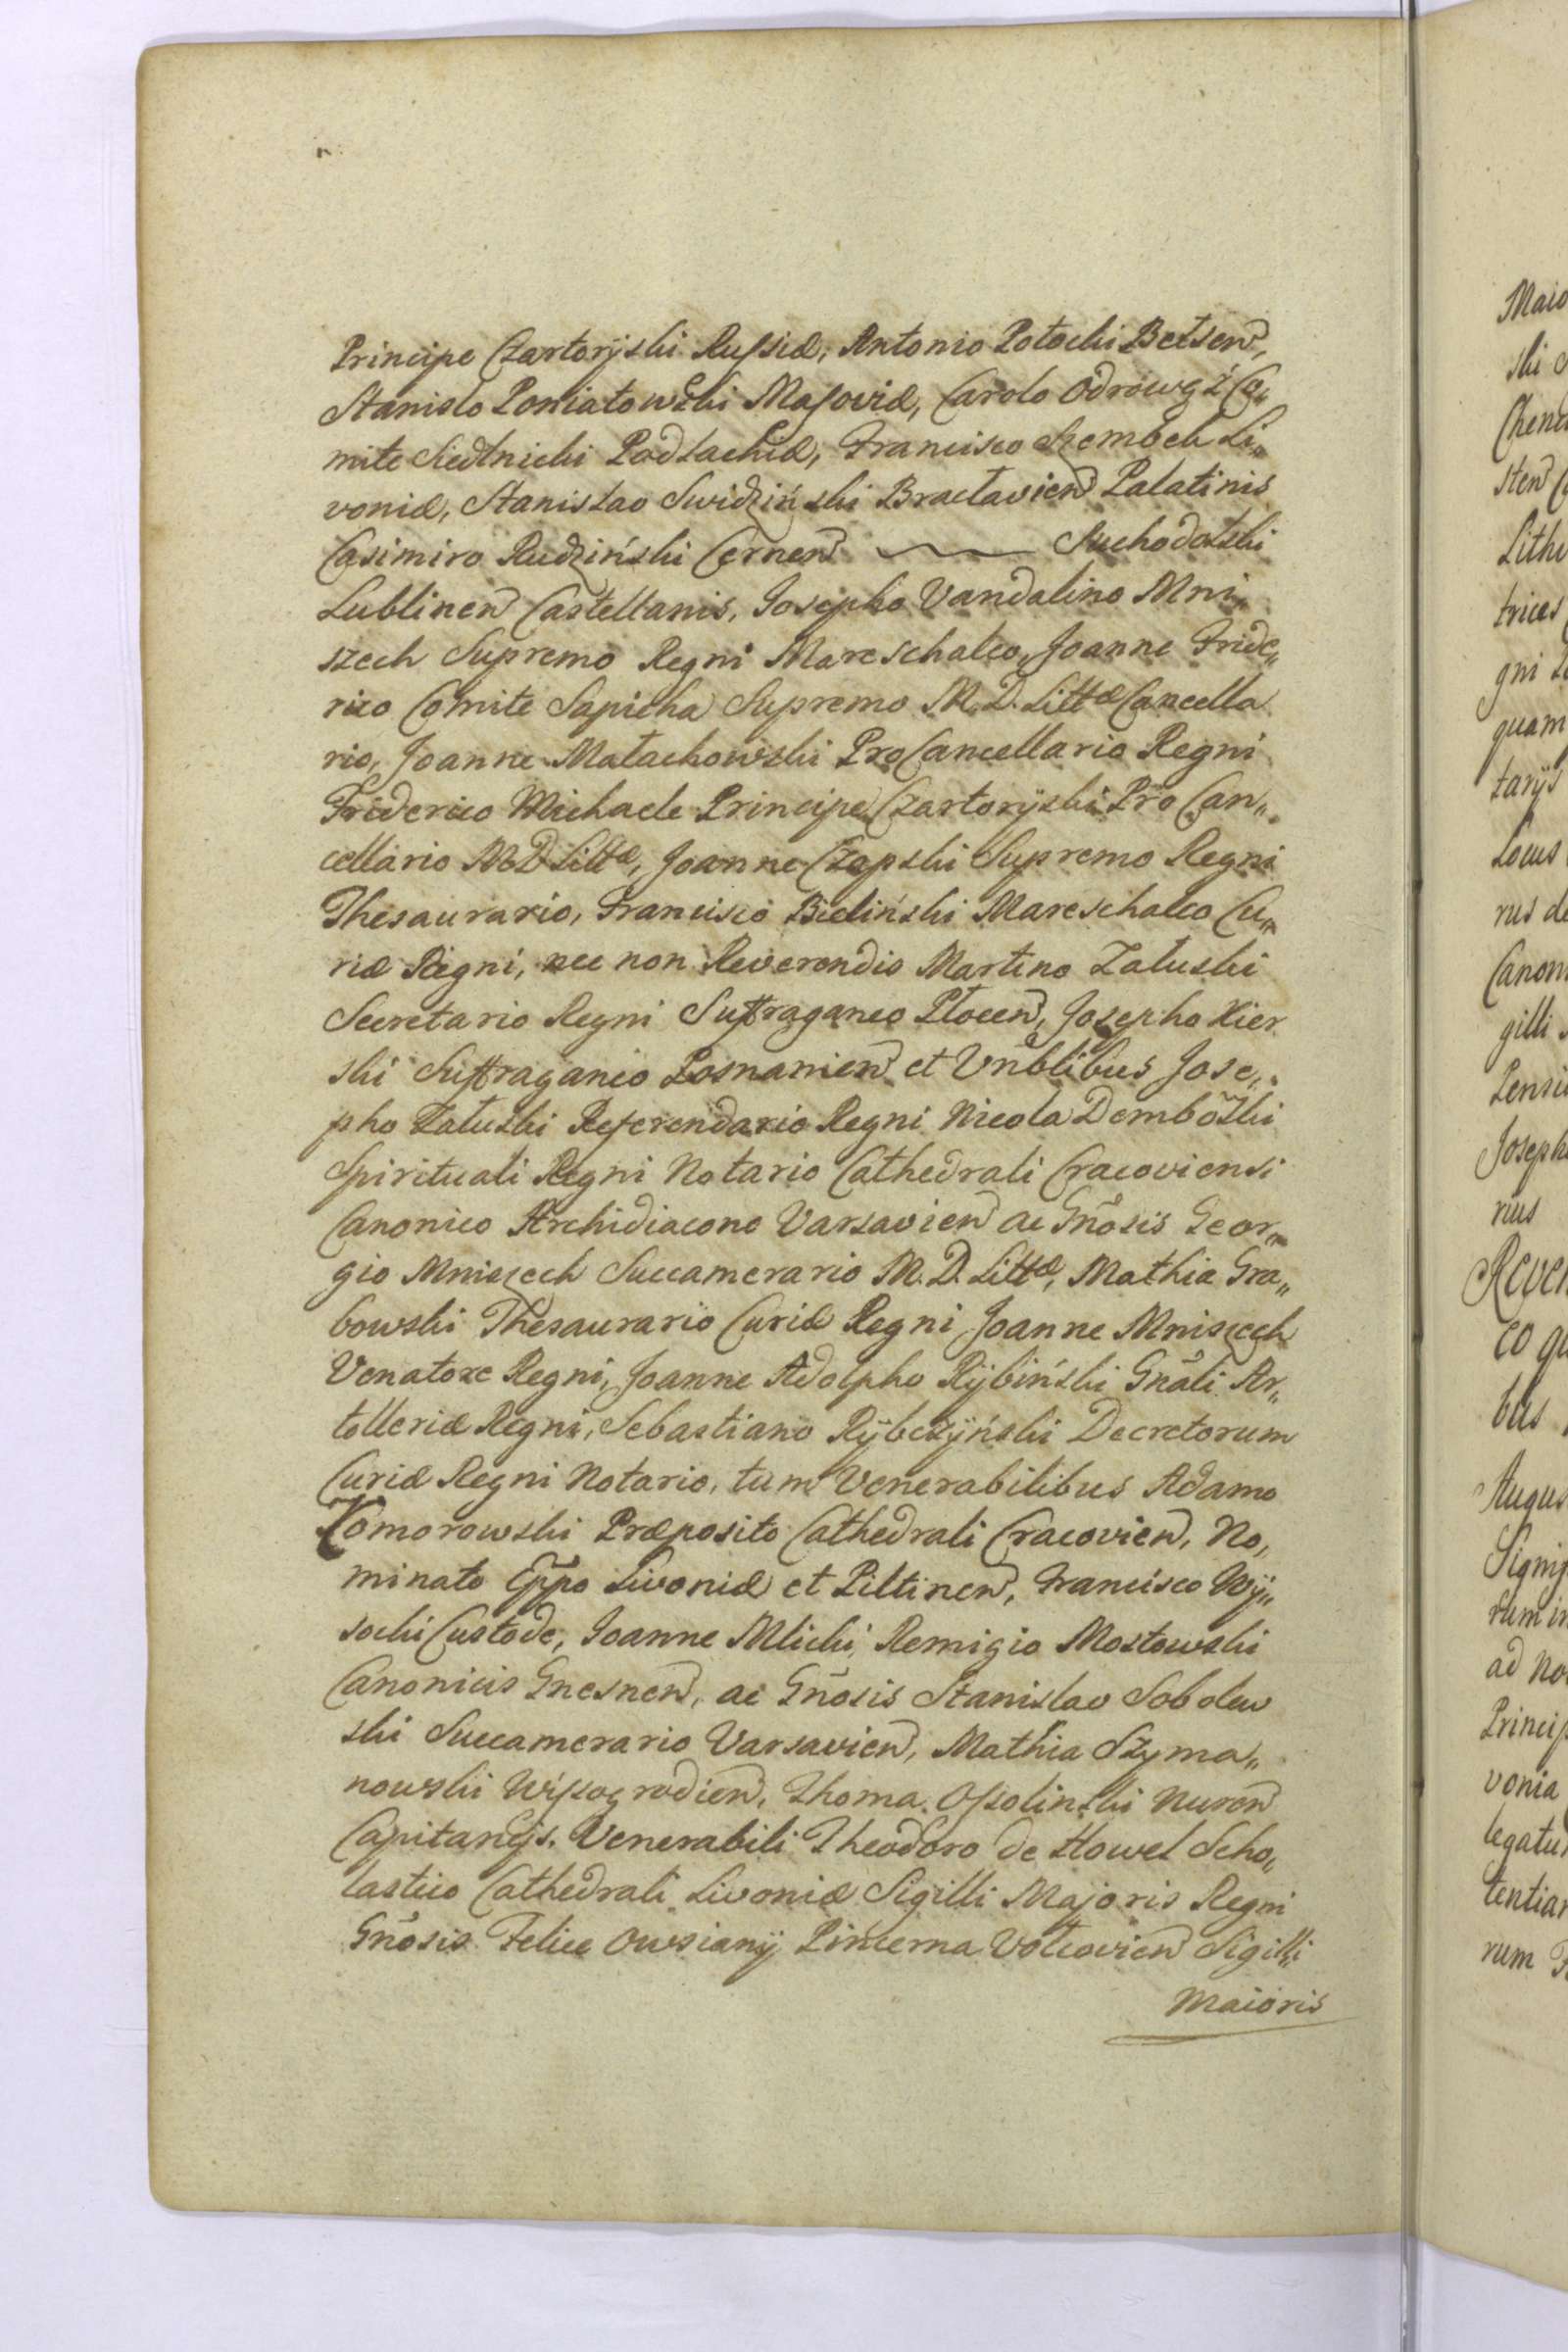 Principe Czartorÿski Russiæ, Antonio Potocki Bełsen,
Stanislo Poniatowski Masoviæ, Carolo Odrowąż Co„
mite Siedlnicki Podlachiæ, Francisco Szembek Li„
voniæ, Stanislao Swidziński Bractavien Palatinis
Casimiro Rudziński Cernen ~ Suchodolski
Lublinen Castellanis, Josepho Vandalino Mni„
szech Supremo Regni Mareschalco, Joanne Fride„
rico Comite Sapieha Supremo M. D. Littæ Cancella
rio, Joanne Małachowski ProCancellario Regni
Friderico Michaele Principe Czartorÿski Pro Can„
cellario M D Littæ, Joanne Czapski Supremo Regni
Thesaurario, Francisco Bieliński Mareschalco Cu„
riæ Regni, nec non Reverendis Martino Załuski
Secretario Regni Suffraganeo Płocen, Josepho Kier
ski Suffraganeo Posnanien et Vnblibus Jose„
pho Załuski Referendario Regni Nicola Dembowski
Spirituali Regni Notario Cathedrali Cracoviensi
Canonico Archidiacono Varsavien ac Gñosis Geor„
gio Mniszech Succamerario M. D. Littæ, Mathia Gra„
bowski Thesaurario Curiæ Regni Joanne Mniszech
Venatore Regni, Joanne Adolpho Rÿbiński Gñali Ar„
tolleriæ Regni, Sebastiano Rÿbczÿński Decretorum
Curiæ Regni Notario, tum Venerabilibus Adamo
Komorowski Præposito Cathedrali Cracovien, No„
minato Eppo Livoniæ et Piltinen, Francisco Wÿ„
socki Custode, Joanne Mlicki, Remigio Mostowski
Canonicis Gnesnen, ac Gñosis Stanislao Sobolew
ski Succamerario Varsavien, Mathia Szyma„
nowski Wissogrodien, Thoma Ossolinski Nuren
Capitaneis. Venerabili Theodoro de Howel Scho„
lastico Cathedrali Livoniæ Sigilli Majoris Regni
Gñosis Felice Owsianÿ Pincerna Volcovien Sigilli
Maioris
Maio
ski
Chend
sten
Lith
trices
gni
quam
tarÿs
Locus
rus de
Canon
gilli
Pensi
Joseph
rius
Rever
eo qu
bus
Augus
Signif
rum in
ad No
Princip
vonia
legatu
tentiar
rum